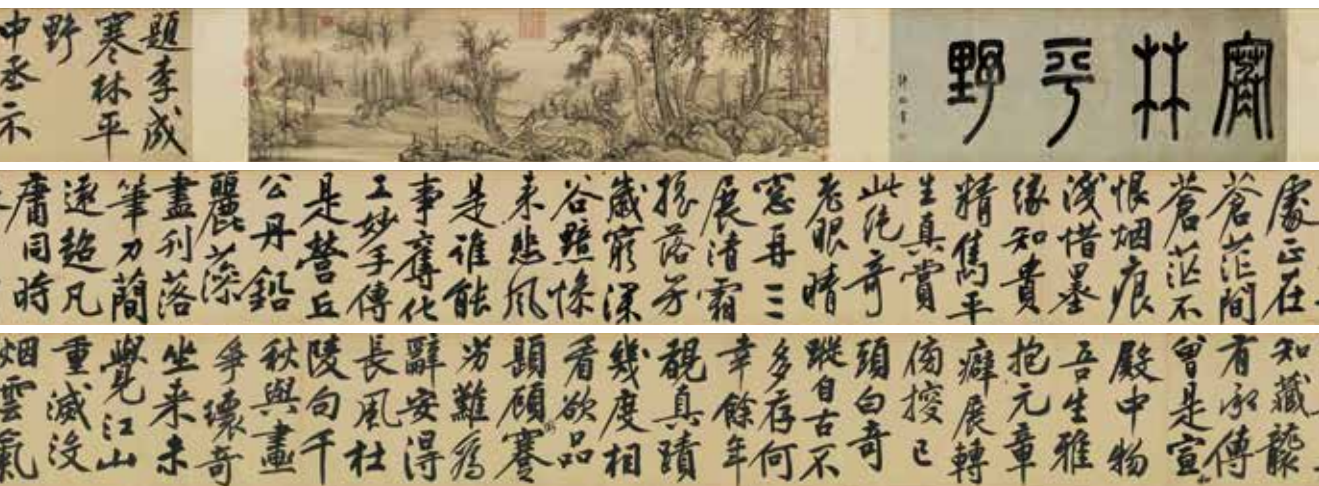 寒林平野
題李成
寒林平
野
中丞示
處正在
蒼茫間
蒼茫不
恨烟痕
淺惜墨
緣知貴
精雋平
生真賞
此绝奇
老眼晴
窓再三
展清霜
摇落芳
歲窮深
谷黯慘
来悲風
是誰能
事奪化
工妙手傳
是營丘
公丹鉛
麗藻
盡刊落
筆力蕳
遠超凡
庸同時
知藏龍
有承傳
曾是宣
殿中物
吾生雅
抱元章
癖展轉
傍搜已
頭白奇
蹤自古不
多存何
幸餘年
覩真蹟
幾度相
看欲品
題顧蹇
劣難為
辭安得
長風杜
陵句千
秋與畫
爭瓌奇
坐来未
覺江山
重滅没
烟雲氣